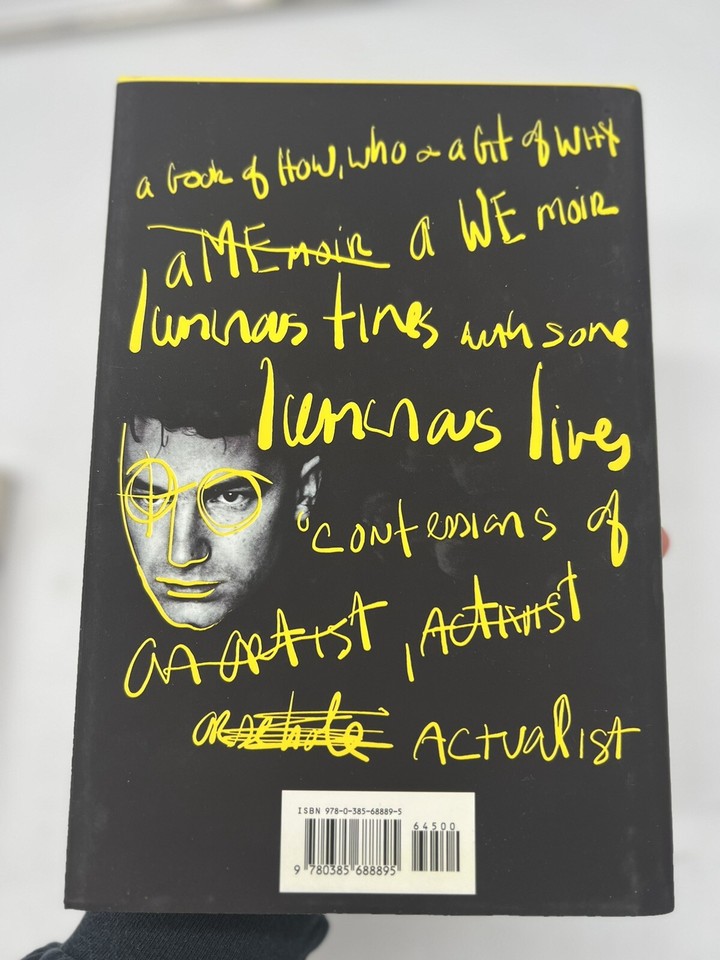 a book of HOW, who & a bit of WHY
a MEmoir a WE moir
luminous times with some
luminous lives
confessions of
an artist, Activist
arsehole ACTUALIST
ISBN 978-0-385-68889-5
64500
9 780385 688895